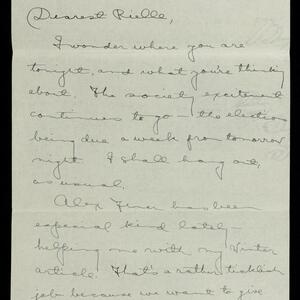 Dearest Rielle,
I wonder where you are
tonight, and what you're thinking
about. The society excitement
continues to go – the elections
being due a week from tomorrow
night. I shall hang out,
as usual.
Alex has been
especial kind lately –
helping me with my Winter
article. That's a rather ticklish
job because we want to give